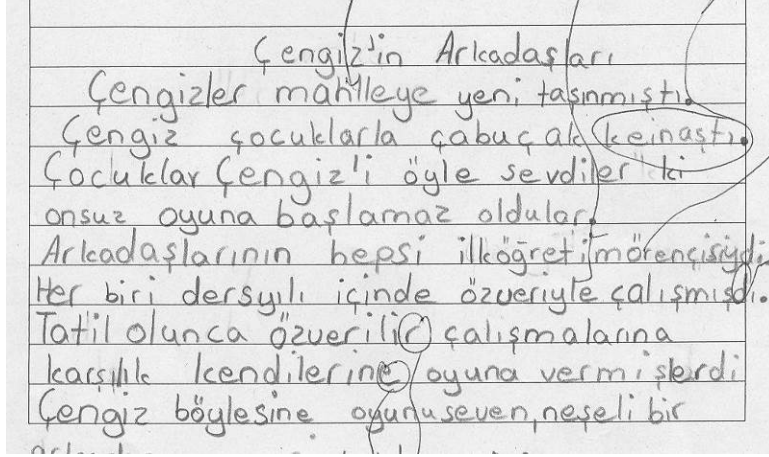 Çengiz'in Arkadaşları
Çengizler mahlleye yeni taşınmıştı.
Çengiz çocuklarla çabuçak keinaştı.
Çocuklar Çengiz'i öyle sevdiler ki
onsuz oyuna başlamaz oldular.
Arkadaşlarının hepsi ilköğretimörençisiydi.
Her biri dersyılı içinde özveriyle çalışmışdı.
Tatil olunca özverilir çalışmalarına
karşılık kendilerine oyuna vermişlerdi
Çengiz böylesine oyunuseven, neşeli bir